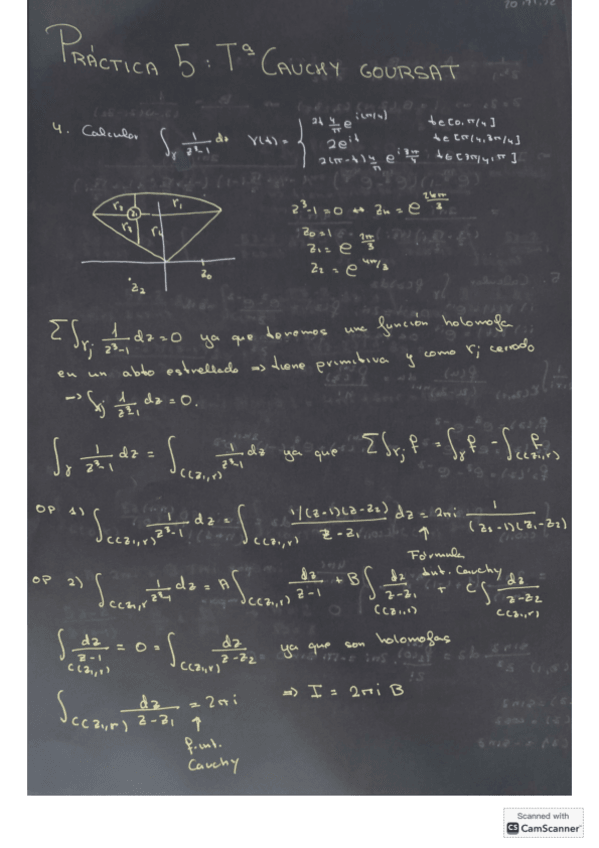 PRÁCTICA 5: Tª CAUCHY GOURSAT
4. Calcular ∫_γ 1/(z³-1) dz γ(t) = { 2t 4/π e^{i(π/4)} t∈[0,π/4]
2e^{it} t∈[π/4,3π/4]
2(π-t) 4/π e^{i 3π/4} t∈[3π/4,π]
r₂ r₁
z₁
r₃ r₄
z₀
z₂
z³-1=0 ⇔ z_k = e^{2kπ/3}
z₀=1
z₁ = e^{2π/3}
z₂ = e^{4π/3}
Σ∫_{γj} 1/(z³-1) dz = 0 ya que tenemos una función holomofa
en un abto estrellado ⇒ tiene primitiva y como γj cerrado
→ ∫_{γj} 1/(z³-1) dz = 0.
∫_γ 1/(z³-1) dz = ∫_{C(z₁,r)} 1/(z³-1) dz ya que Σ∫_{γj} f = ∫_γ f - ∫_{C(z₁,r)} f
OP 1) ∫_{C(z₁,r)} 1/(z³-1) dz = ∫_{C(z₁,r)} 1/(z-1)(z-z₂) / (z-z₁) dz = 2πi 1/((z₁-1)(z₁-z₂))
↑
Fórmula
Int. Cauchy
OP 2) ∫_{C(z₁,r)} 1/(z³-1) dz = A∫_{C(z₁,r)} dz/(z-1) + B∫_{C(z₁,r)} dz/(z-z₁) + C∫_{C(z₁,r)} dz/(z-z₂)
∫_{C(z₁,r)} dz/(z-1) = 0 = ∫_{C(z₁,r)} dz/(z-z₂) ya que son holomofas
∫_{C(z₁,r)} dz/(z-z₁) = 2πi ⇒ I = 2πi B
↑
f.int.
Cauchy
Scanned with
CS CamScanner